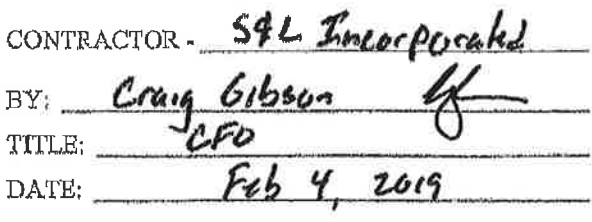 CONTRACTOR - S&L Incorporated
BY: Craig Gibson
TITLE: CFO
DATE: Feb 4, 2019